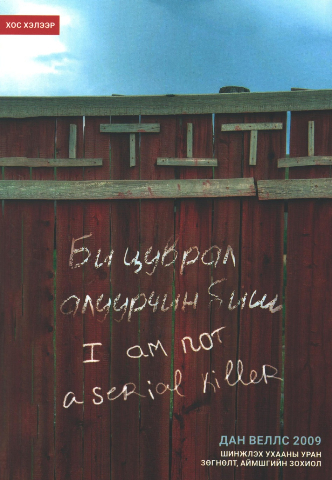 ХОС ХЭЛЭЭР
Би цуврал
алуурчин биш
I am not
a serial killer
ДАН ВЕЛЛС 2009
ШИНЖЛЭХ УХААНЫ УРАН
ЗӨГНӨЛТ, АЙМШГИЙН ЗОХИОЛ